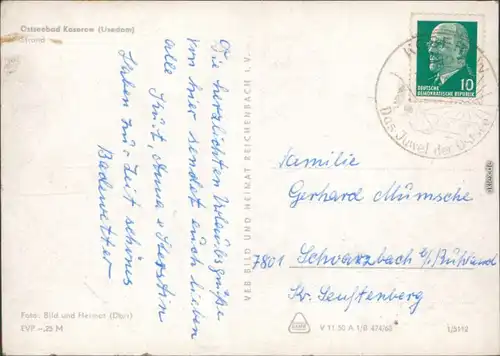 Ostseebad Koserow (Usedom)
Strand
Die herzlichsten Urlaubsgrüße
von hier sendet euch lieben
alle Kurt, Anna u. Kerstin
Haben zur Zeit schönes
Badewetter
VEB BILD UND HEIMAT REICHENBACH i. V.
DEUTSCHE
DEMOKRATISCHE REPUBLIK
10
Das Juwel der Ostsee
Familie
Gerhard Mümsche
7801 Schwarzbach b/Ruhland
Kr. Senftenberg
Foto: Bild und Heimat
EVP -,25 M
V 11 50 A 1/B 474/69
1/5112